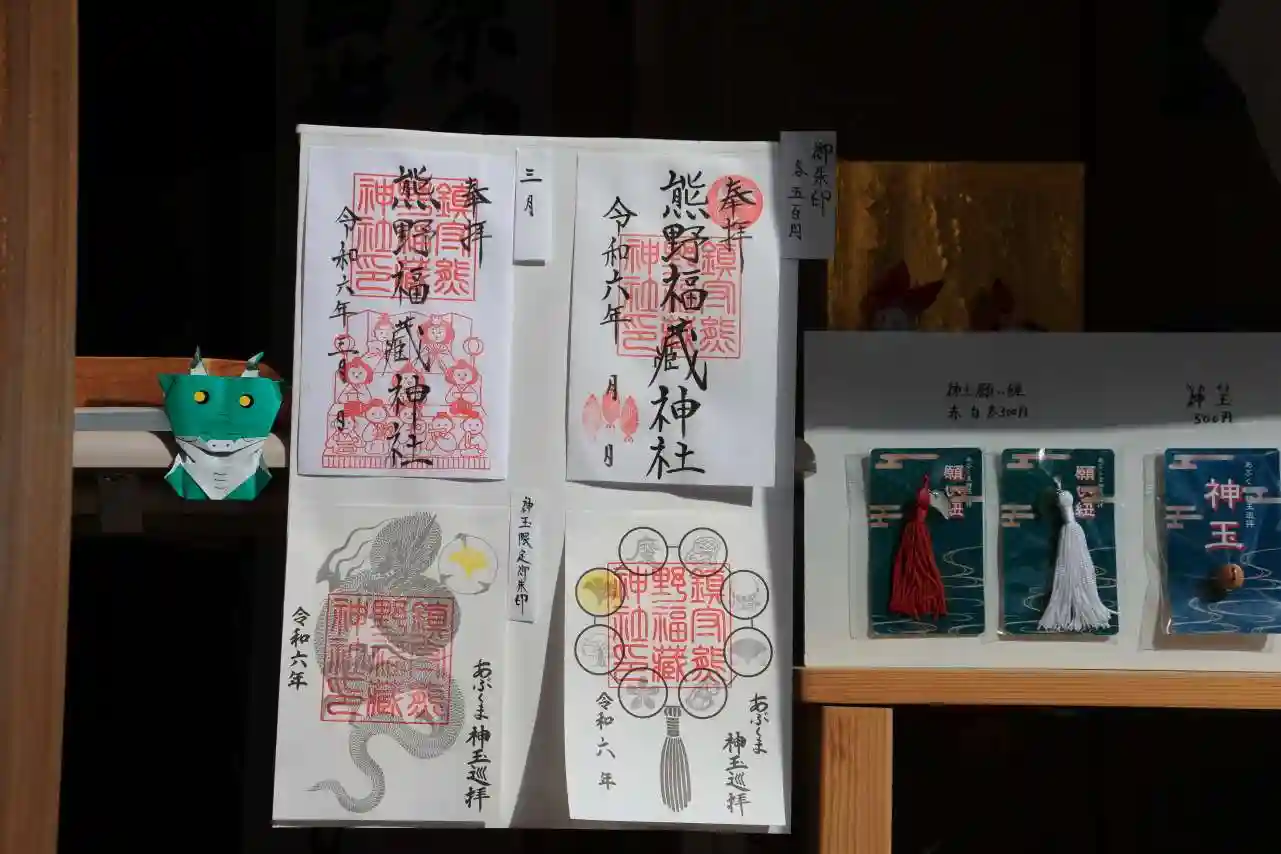 奉拝
熊野福藏神社
令和六年
三月
日
鎮守熊
野福藏
神社印
三月
奉拝
熊野福藏神社
令和六年
月
日
鎮守熊
野福藏
神社印
御朱印
各五百円
神玉限定御朱印
あぶくま神玉巡拝
令和六年
鎮守熊
野福藏
神社印
あぶくま
神玉巡拝
令和六年
鎮守熊
野福藏
神社印
神玉願い紐
赤白各300円
神玉
500円
願い紐
願い紐
神玉